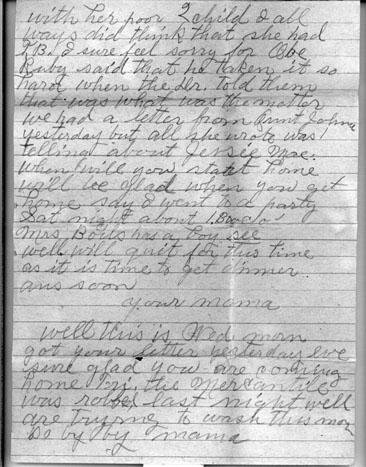 with her poor 2 child I all
ways did think that she had
T.B. I sure feel sorry for Obe
Ruby said that he taken it so
hard when the dr. told them
that was what was the matter
we had a letter from Aunt
yesterday but all she wrote was
telling about Jessie Mae.
when will you start home
will be glad when you get
home say I went to a party
Sat night about
Mrs has a boy see
well will quit for this time
as it is time to get dinner
ans soon
your mama
well this is Wed morn
got your letter yesterday eve
sure glad you are coming
home the Mercantile
was robed last night well
are trying to wash this morn
so by by mama